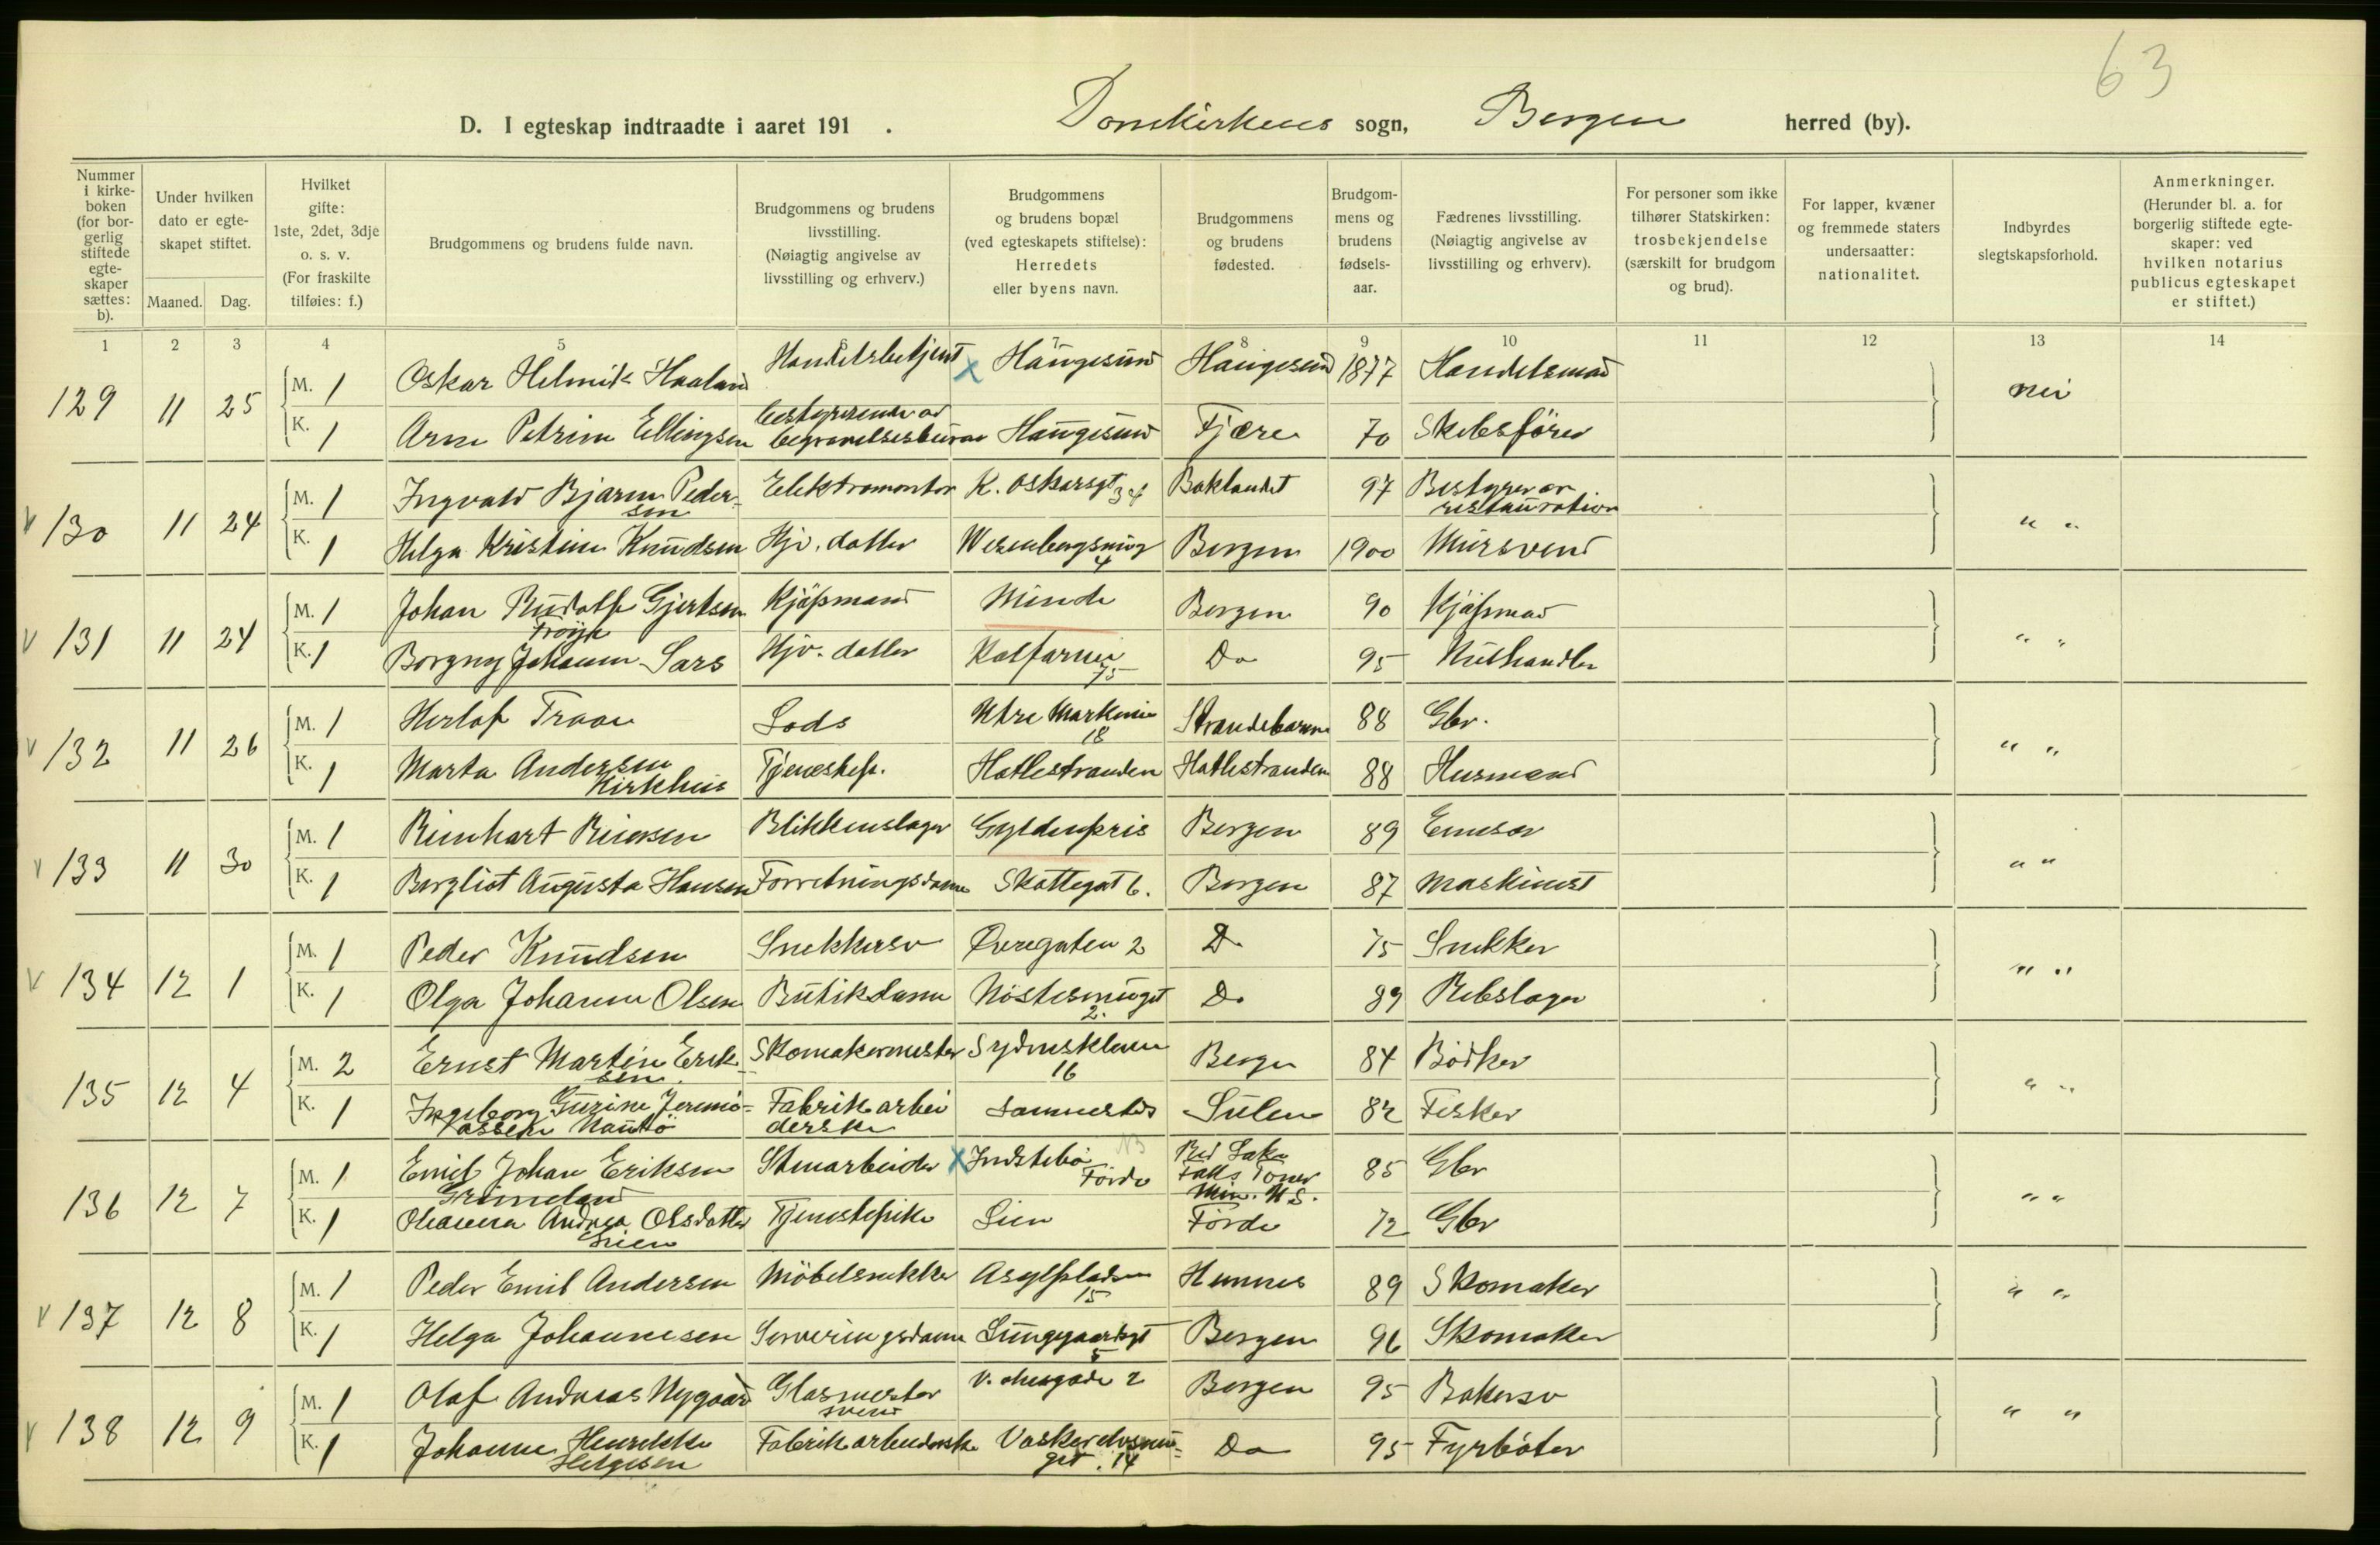 63
D. I egteskap indtraadte i aaret 191 . Domkirkens sogn, Bergen herred (by).
Nummer i kirke-boken (for bor-gerlig stiftede egte-skaper sættes: b).
Under hvilken dato er egte-skapet stiftet.
Maaned. Dag.
Hvilket gifte: 1ste, 2det, 3dje o. s. v. (For fraskilte tilføies: f.)
Brudgommens og brudens fulde navn.
Brudgommens og brudens livsstilling. (Nøiagtig angivelse av livsstilling og erhverv.)
Brudgommens og brudens bopæl (ved egteskapets stiftelse): Herredets eller byens navn.
Brudgommens og brudens fødested.
Brudgom-mens og brudens fødsels-aar.
Fædrenes livsstilling. (Nøiagtig angivelse av livsstilling og erhverv).
For personer som ikke tilhører Statskirken: trosbekjendelse (særskilt for brudgom og brud).
For lapper, kvæner og fremmede staters undersaatter: nationalitet.
Indbyrdes slegtskapsforhold.
Anmerkninger. (Herunder bl. a. for borgerlig stiftede egte-skaper: ved hvilken notarius publicus egteskapet er stiftet.)
1 2 3 4 5 6 7 8 9 10 11 12 13 14
129 11 25 M. 1 Oskar Helmik Haaland Handelsbetjent x Haugesund Haugesund 1877 Handelsmand nei
K. 1 Arne Petrine Ellingsen bestyrerinde av begravelsesbureau Haugesund Fjære 70 Skibsfører
v 130 11 24 M. 1 Ingvald Bjarne Peder-sen Elektromontør K. Oskarsgt 34 Baklandet 97 Bestyrer av restauration " "
K. 1 Helga Kristine Knudsen Hjv. datter Wesenbergsmug 4 Bergen 1900 Mursvend
v 131 11 24 M. 1 Johan Rudolf Gjertsen Frøyn Kjøpmand Minde Bergen 90 Kjøpmand " "
K. 1 Borgny Johanne Sars Hjv. datter Kalfarvei 75 Do 95 Huthandler
v 132 11 26 M. 1 Herlof Traae Lods Ytre Markevei 18 Strandebarm 88 Gbr. " "
K. 1 Marta Andersen Kirkhus Tjenestep. Hatlestranden Hatlestranden 88 Husmand
v 133 11 30 M. 1 Reinhart Blikkenslager Gyldenpris Bergen 89 " "
K. 1 Bergliot Augusta Hansen Forretningsdame Skottegat 6. Bergen 87 Maskinist
v 134 12 1 M. 1 Peder Knudsen Snekkersv Øvregaten 2 Do 75 Snekker " "
K. 1 Olga Johanne Olsen Butikdame Nøstesmuget 2. Do 89 Rebslager
135 12 4 M. 2 Ernst Martin Erik-sen Skomakermester Sydneskleven 16 Bergen 84 Bødker " "
K. 1 Ingeborg Gurine Jeremi-assen Nautø Fabrikarbei derske Sammesteds Sulen 82 Fisker
136 12 7 M. 1 Emil Johan Eriksen Grimeland Stenarbeider x Indstebø Førde NB Red Lake Falls Toner Min. U S. 85 Gbr " "
K. 1 Oleanna Andrea Olsdatter Lien Tjenestepike Lien Førde 72 Gbr
v 137 12 8 M. 1 Peder Emil Andersen Møbelsnekker Asylpladsen 15 Hennes 89 Skomaker " "
K. 1 Helga Johannesen Serveringsdame Lungegaardsgt 5 Bergen 96 Skomaker
v 138 12 9 M. 1 Olaf Andreas Nygaard Glasmester svend 2 Bergen 95 Bakersv " "
K. 1 Johanne Henrikke Helgesen Fabrikarbeiderske Vaskerelvsmu-get. 14 Do 95 Fyrbøter